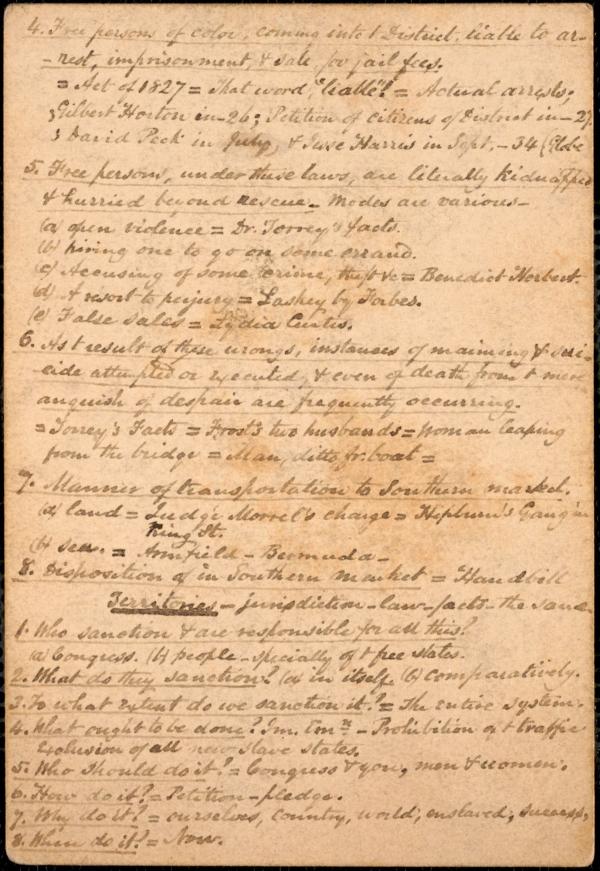 4. Free persons of color, coming into t District, liable to ar-
-rest, imprisonment, & sale, for jail fees.
= Act of 1827 = That word, "liable"! = Actual arrests;
; Gilbert Horton in -26; Petition of citizens of District in -27
; David Peck in July, & Jesse Harris in Sept. -34 (Globe
5. Free persons, under these laws, are literally kidnapped
& hurried beyond rescue. Modes are various-
(a) open violence = Dr. Torrey's facts.
(b) hiring one to go on some errand.
(c) Accusing of some crime, theft &c = Benedict Norbert.
(d) A resort to perjury = Lashley by Forbes.
(e) False sales = Lydia Curtis.
6. As t result of these wrongs, instances of maiming & sui-
cide attempted or executed, & even of death from t mere
anguish of despair are frequently occurring.
= Torrey's Facts = Frost's two husbands = Woman leaping
from the bridge = Man, ditto fr. boat =
7. Manner of transportation to Southern market.
(a) land = Judge Morrel's charge = Hepburn's Gang in
King St.
(b) sea. = Armfield - Bermuda -
8. Disposition of in Southern market = Handbill
Territories - jurisdiction - law - facts - the same
1. Who sanction & are responsible for all this?
(a) Congress. (b) people - specially of t free states.
2. What do they sanction? (a) in itself (b) comparatively.
3. To what extent do we sanction it? = The entire system.
4. What ought to be done? Im. Em.n - Prohibition of t traffic
Exclusion of all new slave states.
5. Who should do it? = Congress & you, men & women.
6. How do it? = Petition - pledge.
7. Why do it? = ourselves, country, world, enslaved, success,
8. When do it? = Now.